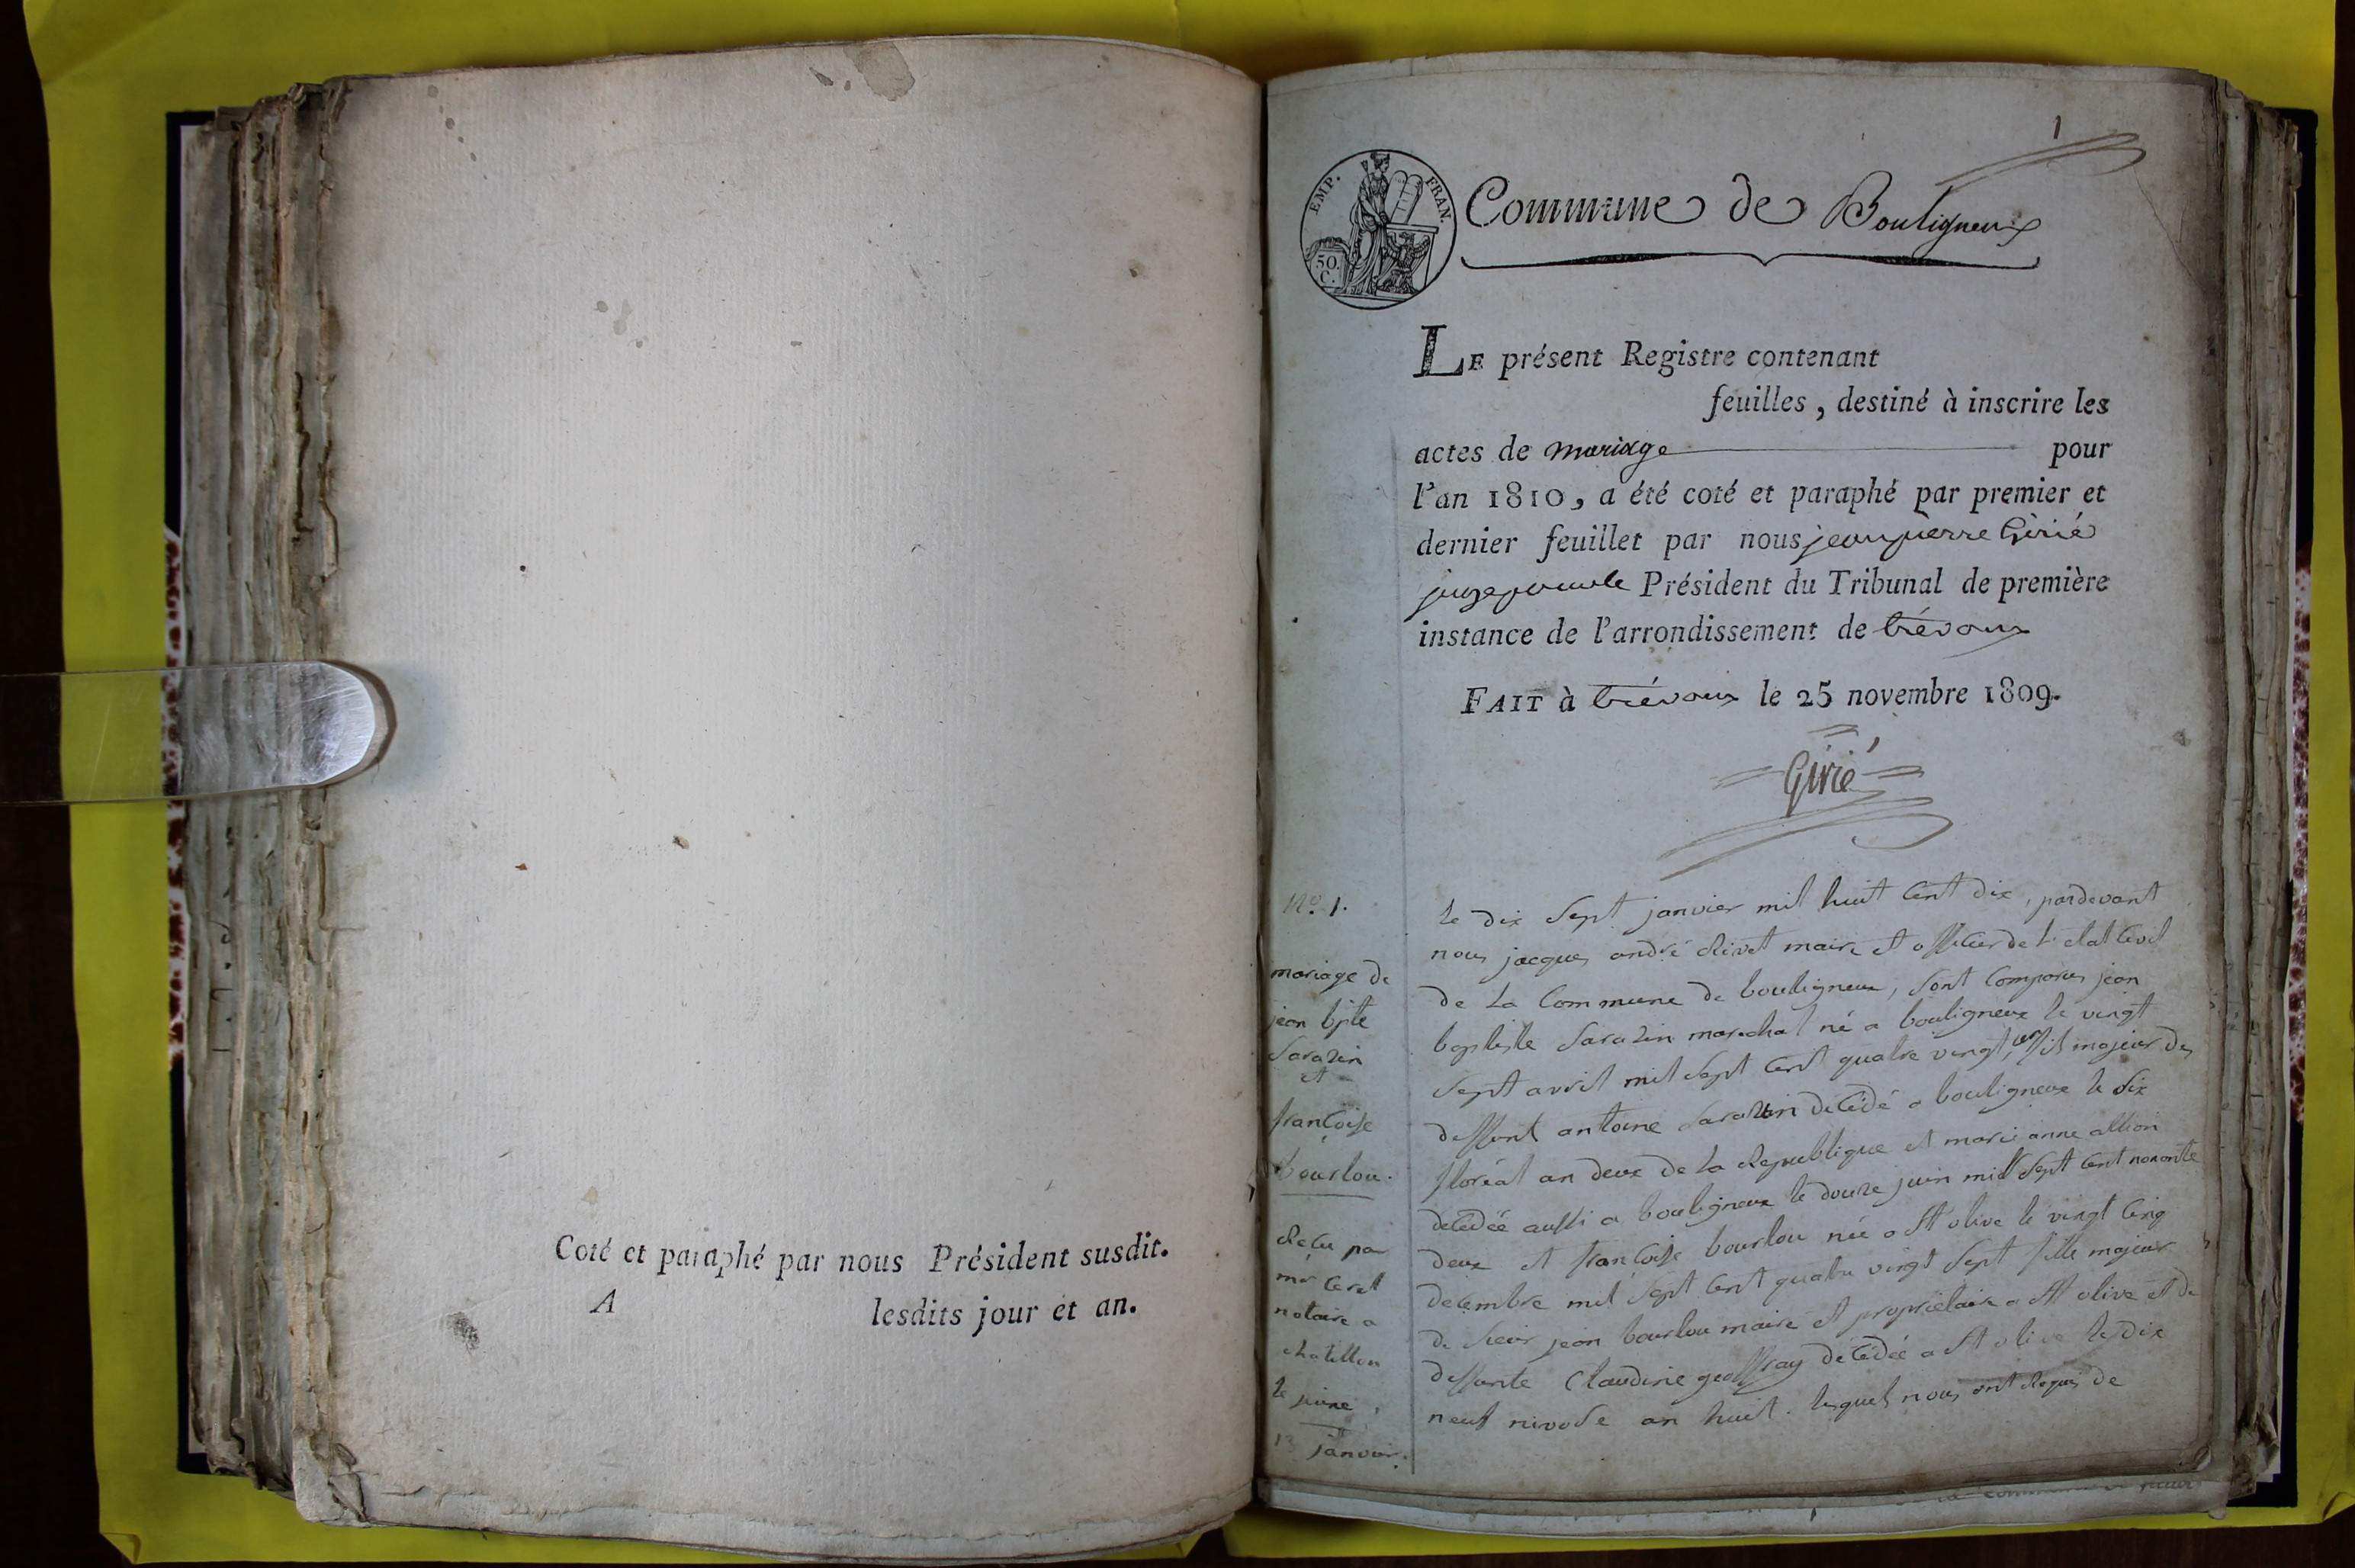 Coté et paraphé par nous Président susdit.
A lesdits jour et an.
1
EMP. FRAN.
50.
C.
Commune de Bouligneux
LE présent Registre contenant
feuilles, destiné à inscrire les
actes de mariage pour
l'an 1810, a été coté et paraphé par premier et
dernier feuillet par nous jean pierre Girié
juge Président du Tribunal de première
instance de l'arrondissement de trévoux
FAIT à trévoux le 25 novembre 1809.
Girié
No. 1.
mariage de
jean bpte
Sarazin
et
françoise
bourlou.
Recu par
notaire a
chatillon
le
janvier.
Le dix Sept janvier mil huit Cent dix, pardevant
nous jacques andré Rivet maire et officier de l'etat Civil
de La Commune de bouligneux, Sont Comparus jean
baptiste Sarazin marechal né a bouligneux le vingt
Sept avril mil Sept Cent quatre vingt, fils majeur de
deffunt antoine Sarazin décédé a bouligneux le Six
floréal an deux de La Republique et marie anne allion
décédée aussi a bouligneux le douze juin mil Sept Cent nonante
deux et françoise bourlou née a St olive le vingt Cinq
décembre mil Sept Cent quatre vingt Sept fille majeur
de Sieur jean bourlou maire et propriétaire a St olive et de
deffunte Claudine geoffray décédée a St olive le dix
neuf nivose an huit. lesquels nous ont Requis de